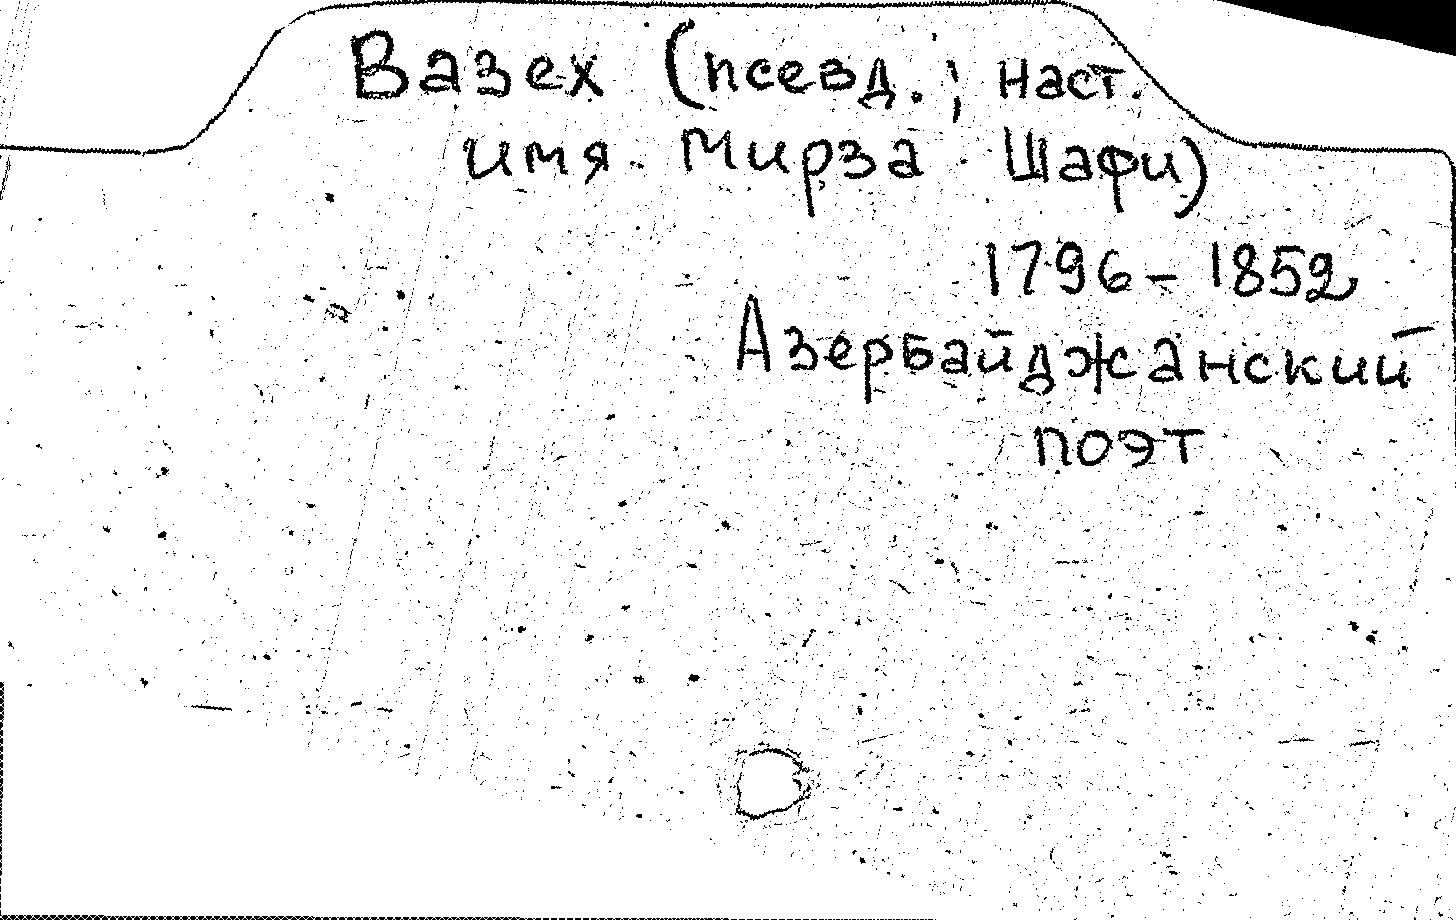 Вазех (псевд.; наст.
имя Мирза Шафи)
1796-1852
Азербайджанский
поэт